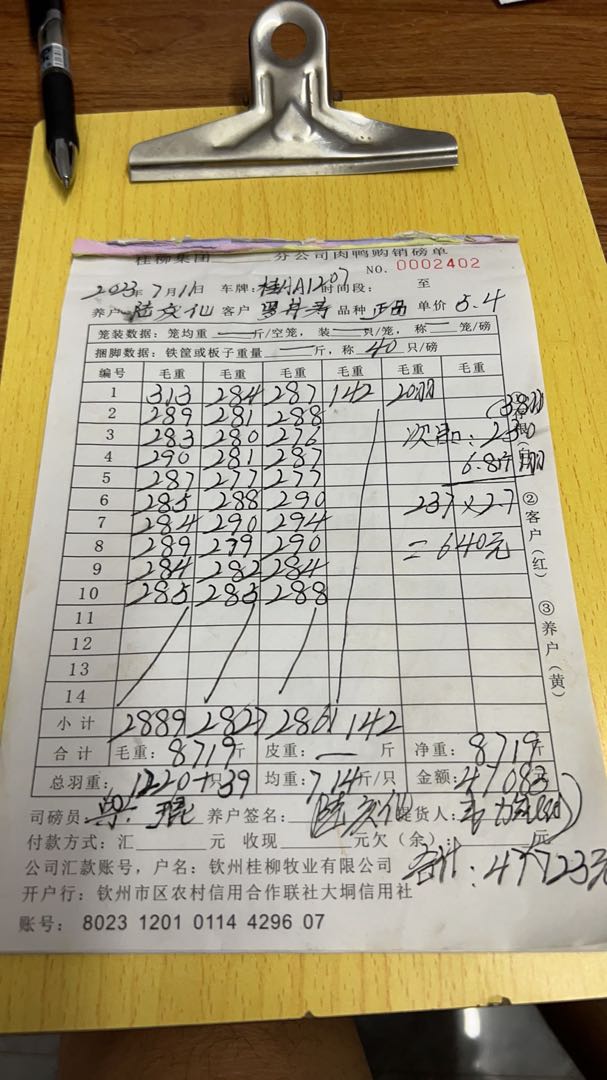 桂柳集团 分公司肉鸭购销磅单
NO. 0002402
2023年7月1日 车牌: 桂AA1207 时间段: 至
养户 客户 品种 正品 单价 5.4
笼装数据: 笼均重 — 斤/空笼, 装 — 只/笼, 称 — 笼/磅
捆脚数据: 铁筐或板子重量 — 斤, 称 40 只/磅
编号 毛重 毛重 毛重 毛重 毛重 毛重
1 313 284 287 142 20羽
2 289 281 288
3 283 280 276 次品:
4 290 281 287 6.8斤
5 287 277 277
6 285 288 290 237×2.7
7 284 290 294
8 289 279 290 =640元
9 284 282 284
10 285 285 288
11
12
13
14
小计 2889 2827 2861 142
合计 毛重: 8719斤 皮重: — 斤 净重: 8719斤
总羽重: 1220+39只 均重: 7.14斤/只 金额: 47083
司磅员: 养户签名: 提货人:
付款方式: 汇 元 收现 元欠(余): 元
公司汇款账号, 户名: 钦州桂柳牧业有限公司
合计: 47723元
开户行: 钦州市区农村信用合作联社大垌信用社
账号: 8023 1201 0114 4296 07
②客户(红)
③养户(黄)